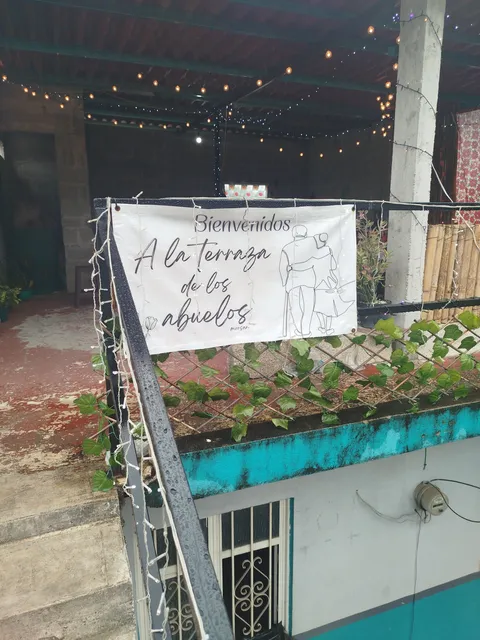 Bienvenidos
A la Terraza
de los
abuelos